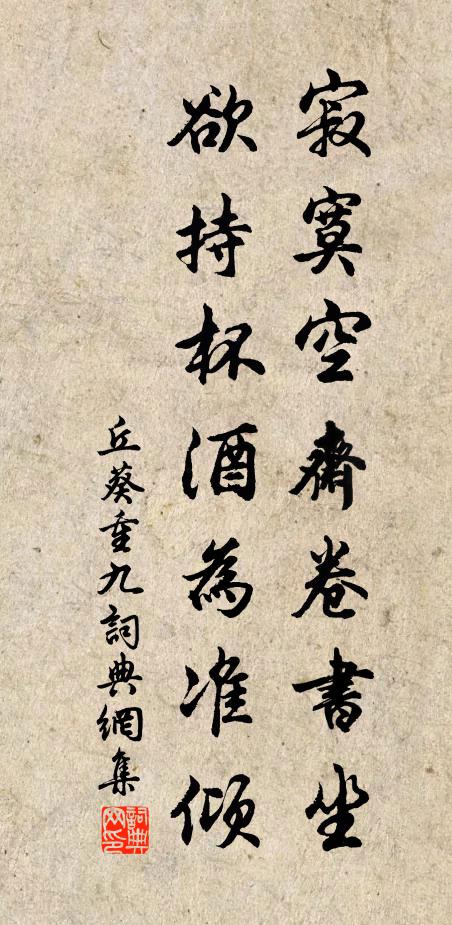 寂寞空齋卷書坐
欲持杯酒為准傾
丘葵重九詞典網集
詞典網印